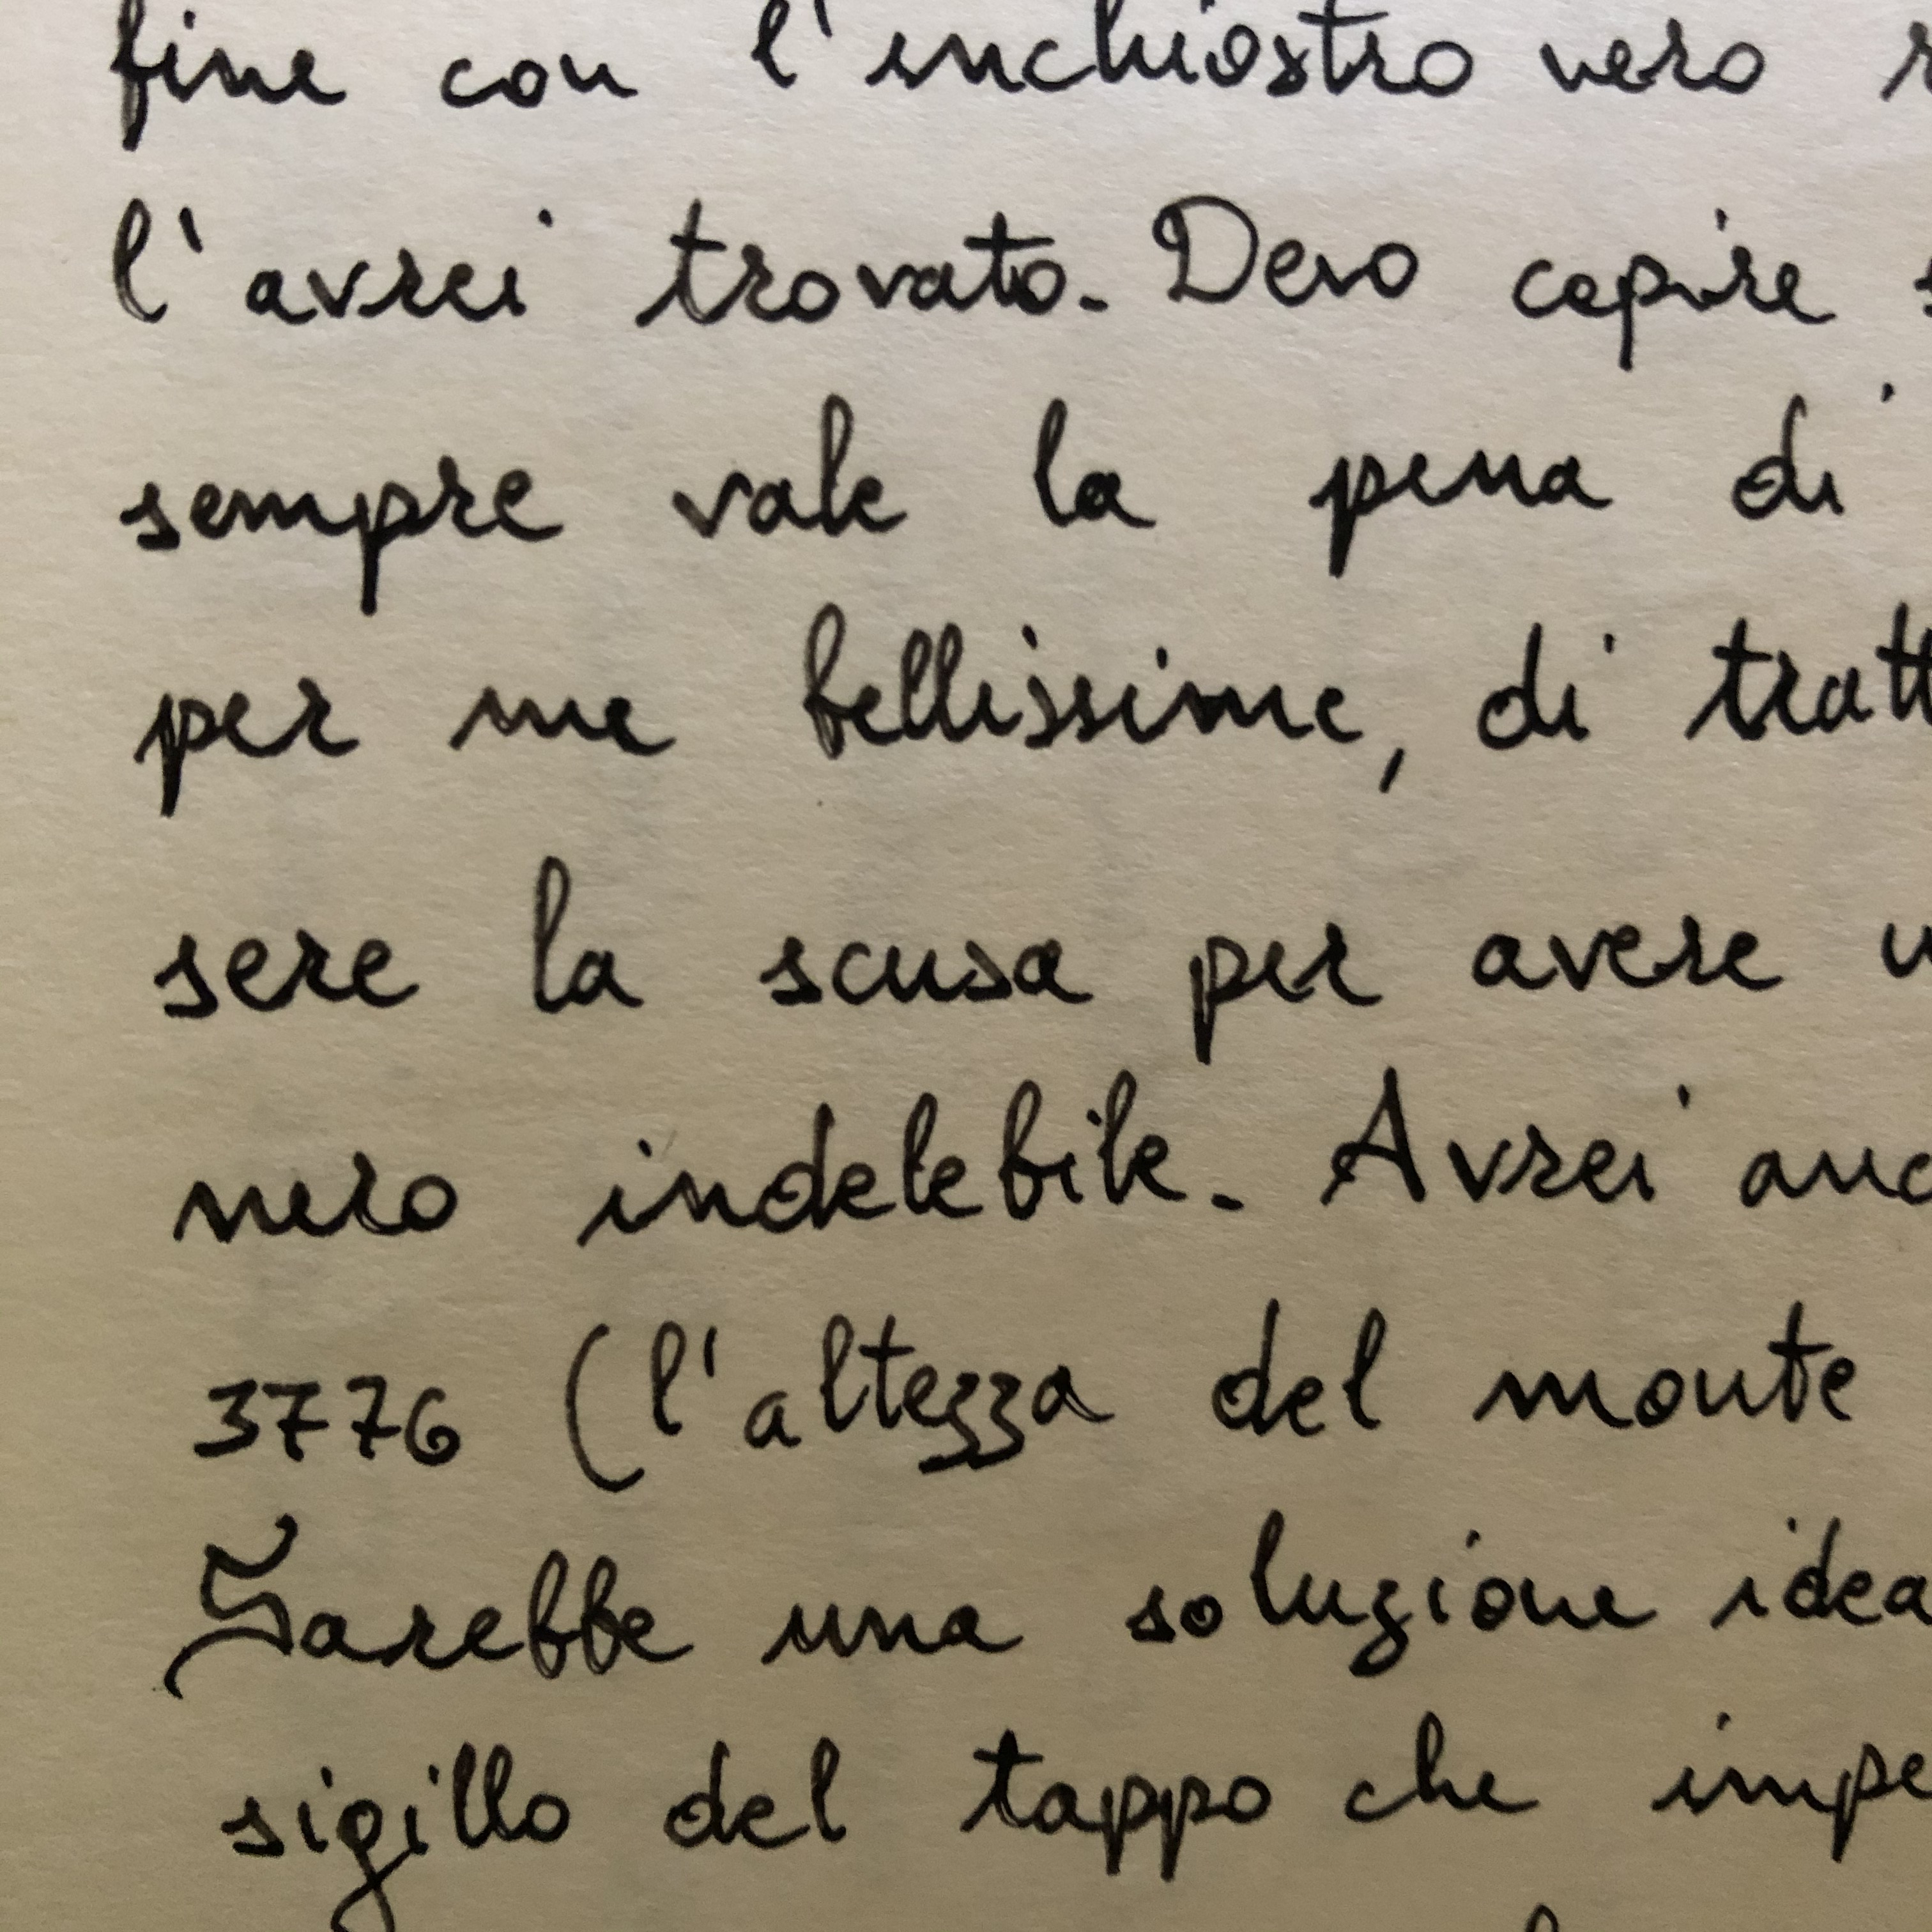 fine con l'inchiostro vero
l'avrei trovato. Devo capire
sempre vale la pena di
per me bellissime, di tratt
sere la scusa per avere
nero indelebile. Avrei anc
3776 (l'altezza del monte
Sarebbe una soluzione idea
sigillo del tappo che impe